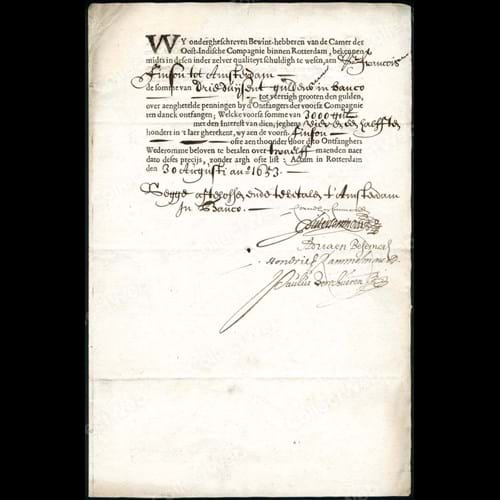 WY ondergheschreven Bewint-hebberen van de Camer der
Oost-Indische Compagnie binnen Rotterdam, bekennen
midts in desen inder zelver qualiteyt schuldigh te wesen, aen Sr. Francois
Finson tot Amsterdam
de somme van Drie duysent guldens in banco
tot veertigh grooten den gulden,
over aenghetelde penningen by d'Ontfangers der voorsz Compagnie
ten danck ontfangen; Welcke voorsz somme van 3000 gul.
met den Interest van dien, jeghens vier en een halff ten
honderd in 't Iaer gherekent, wy aen de voorsz. Finson
ofte aen thoonder door onse Ontfanghers
Wederomme beloven te betalen over twaelff maenden naer
dato deses precijs, zonder argh ofte list: Actum in Rotterdam
den 30 Augusti ano. 1653.
Segge aftelossen ende te betalen t'Amsterdam
In Banco.
Adriaen Besemer
Paulus Verschueren